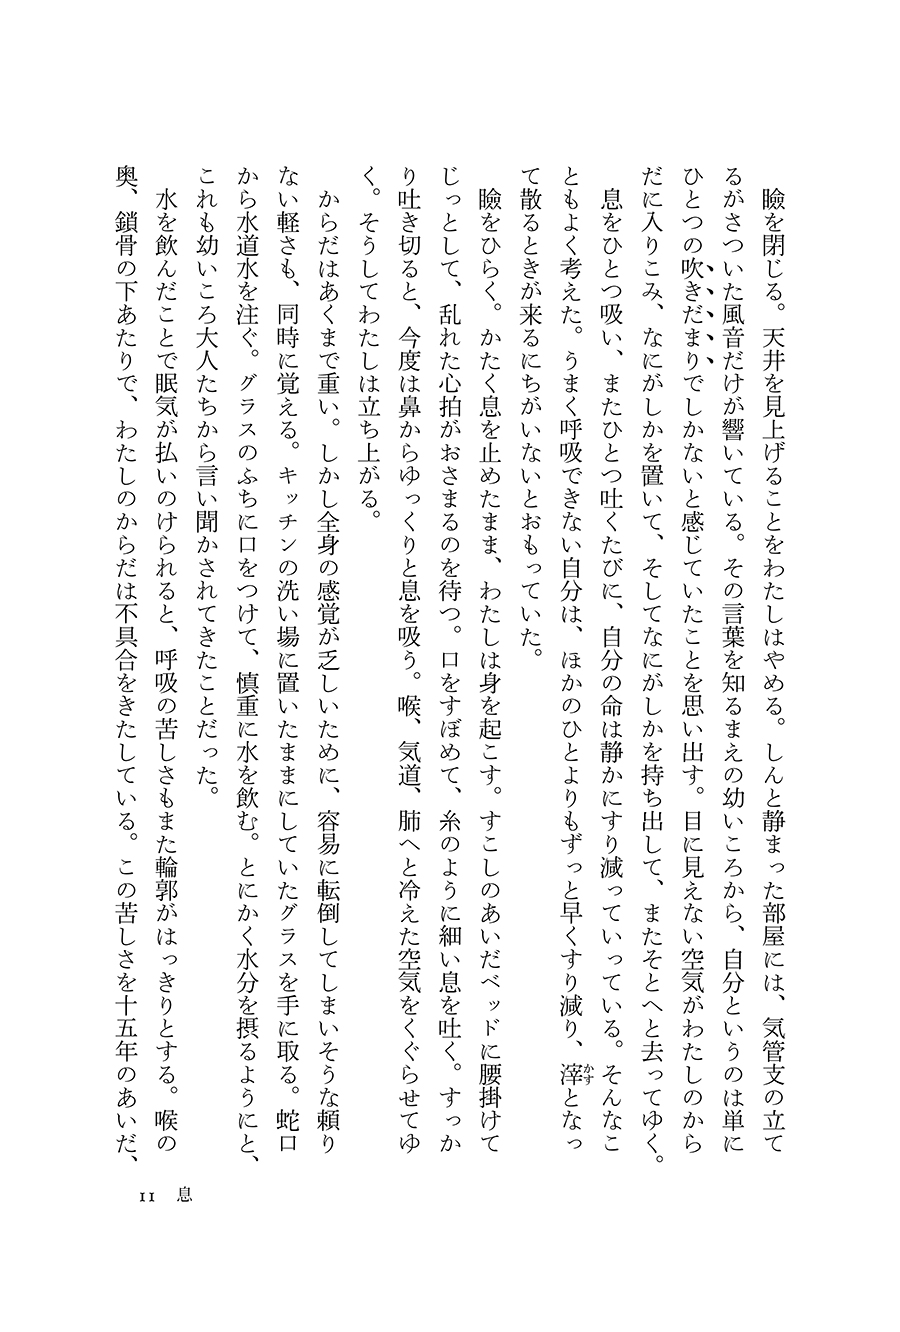 瞼を閉じる。天井を見上げることをわたしはやめる。しんと静まった部屋には、気管支の立て
るがさついた風音だけが響いている。その言葉を知るまえの幼いころから、自分というのは単に
ひとつの吹きだまりでしかないと感じていたことを思い出す。目に見えない空気がわたしのから
だに入りこみ、なにがしかを置いて、そしてなにがしかを持ち出して、またそとへと去ってゆく。
　息をひとつ吸い、またひとつ吐くたびに、自分の命は静かにすり減っていっている。そんなこ
ともよく考えた。うまく呼吸できない自分は、ほかのひとよりもずっと早くすり減り、滓となっ
かす
て散るときが来るにちがいないとおもっていた。
　瞼をひらく。かたく息を止めたまま、わたしは身を起こす。すこしのあいだベッドに腰掛けて
じっとして、乱れた心拍がおさまるのを待つ。口をすぼめて、糸のように細い息を吐く。すっか
り吐き切ると、今度は鼻からゆっくりと息を吸う。喉、気道、肺へと冷えた空気をくぐらせてゆ
く。そうしてわたしは立ち上がる。
　からだはあくまで重い。しかし全身の感覚が乏しいために、容易に転倒してしまいそうな頼り
ない軽さも、同時に覚える。キッチンの洗い場に置いたままにしていたグラスを手に取る。蛇口
から水道水を注ぐ。グラスのふちに口をつけて、慎重に水を飲む。とにかく水分を摂るようにと、
これも幼いころ大人たちから言い聞かされてきたことだった。
　水を飲んだことで眠気が払いのけられると、呼吸の苦しさもまた輪郭がはっきりとする。喉の
奥、鎖骨の下あたりで、わたしのからだは不具合をきたしている。この苦しさを十五年のあいだ、
11　息